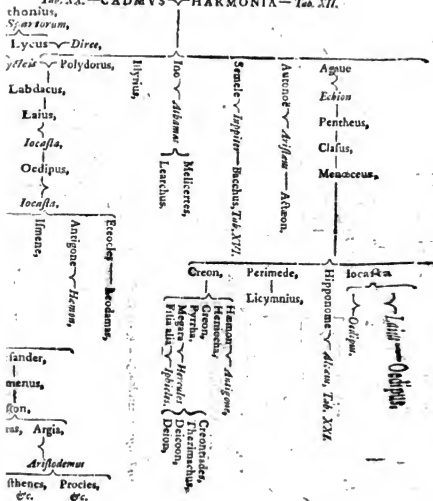 Tab. XX. — CADMVS HARMONIA — Tab. XII.
thonius,
Spartorum,
Lycus Dirce,
ycteis Polydorus,
Labdacus,
Laius,
Iocasta,
Oedipus,
Iocasta.
Ismene,
Antigone Hæmon,
Eteocles Leodamas,
Illyrius,
Ino Athamas
Learchus.
Melicertes,
Semele Iuppiter Bacchus, Tab. XVI.
Autonoë Aristæus Actæon.
Agaue
Echion
Pentheus,
Clasus,
Menœceus,
Creon, Perimede, Iocasta
Licymnius,
Hipponome Alcæus, Tab. XXI.
Oedipus,
Laius Oedipus,
Hæmon Antigone,
Heniocha,
Creon,
Pyrrha,
Megara Hercules
Filia alia Iphicles,
Creontiades,
Therimachus,
Deicoon,
Deion,
sander,
menus,
ston,
ras, Argia,
Aristodemus
sthenes, Procles,
&c. &c.